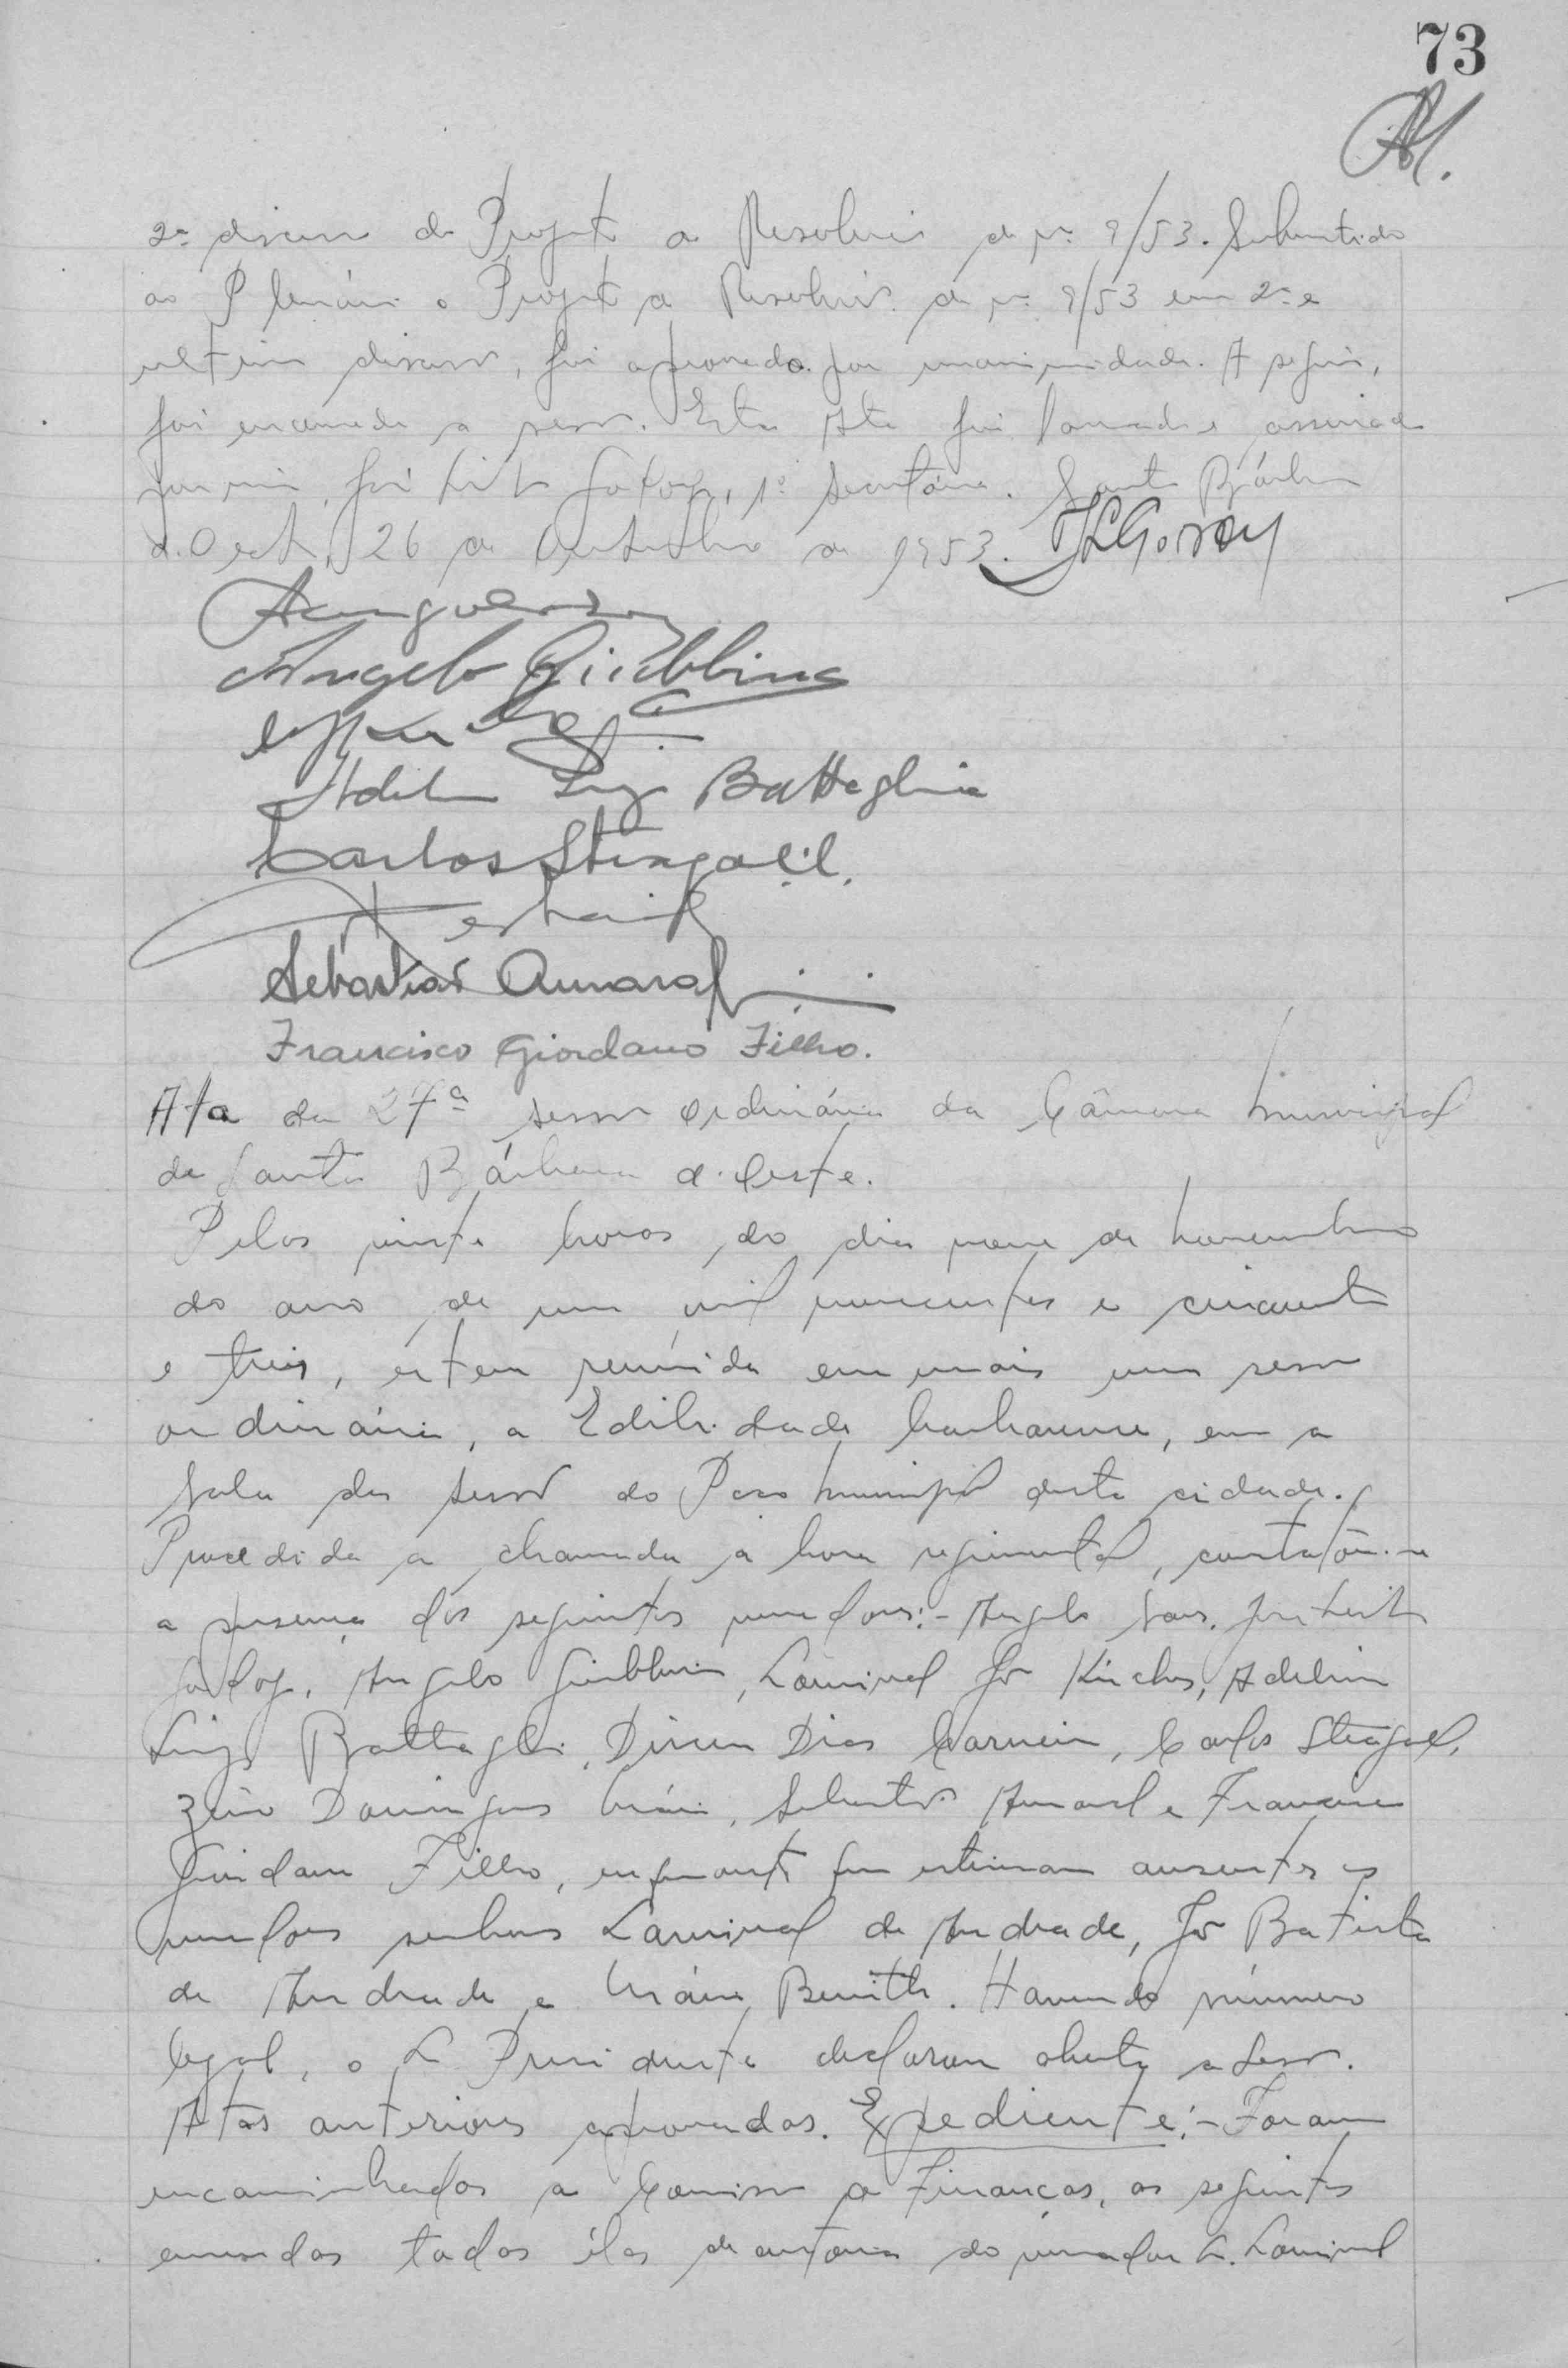 73
2ª discussão do Projeto de Resolução de nº 9/53. Submetido
ao Plenário o Projeto de Resolução de nº 9/53 em 2ª e
ultima discussão, foi aprovado por unanimidade. A seguir,
foi encerrada a sessão. Esta Ata foi lavrada e assinada
por mim, José Leite Godoy, 1º Secretário. Santa Bárbara
d'Oeste, 26 de Outubro de 1953. JLGodoy
Angelo Giubbina
Adelino Luiz Battaglia
Carlos Steagall.
Sebastião Amaral
Francisco Giordano Filho.
Ata da 27ª sessão ordinária da Câmara Municipal
de Santa Bárbara d'Oeste.
Pelas vinte horas do dia nove de Novembro
do ano de um mil novecentos e cincoenta
e treis, esteve reunida em mais uma sessão
ordinária, a Edilidade barbarense, em a
sala das sessões do Paço Municipal desta cidade.
Procedida a chamada à hora regimental, constatou-se
a presença dos seguintes vereadores:- Angelo Sans, José Leite
Godoy, Angelo Giubbina, Lourival José Kirche, Adelino
Luiz Battaglia, Dirceu Dias Carneiro, Carlos Steagall,
Domingues Sebastião Amaral e Francisco
Giordano Filho, enquanto que estiveram ausentes os
vereadores senhores Lourival de Andrade, José Batista
de Andrade e Mário Havendo número
legal, o Sr Presidente declarou aberta a sessão.
Atas anteriores aprovadas. Expediente:- Foram
encaminhados a Comissão de Finanças, as seguintes
emendas todas élas de autoria do vereador Sr. Lourival